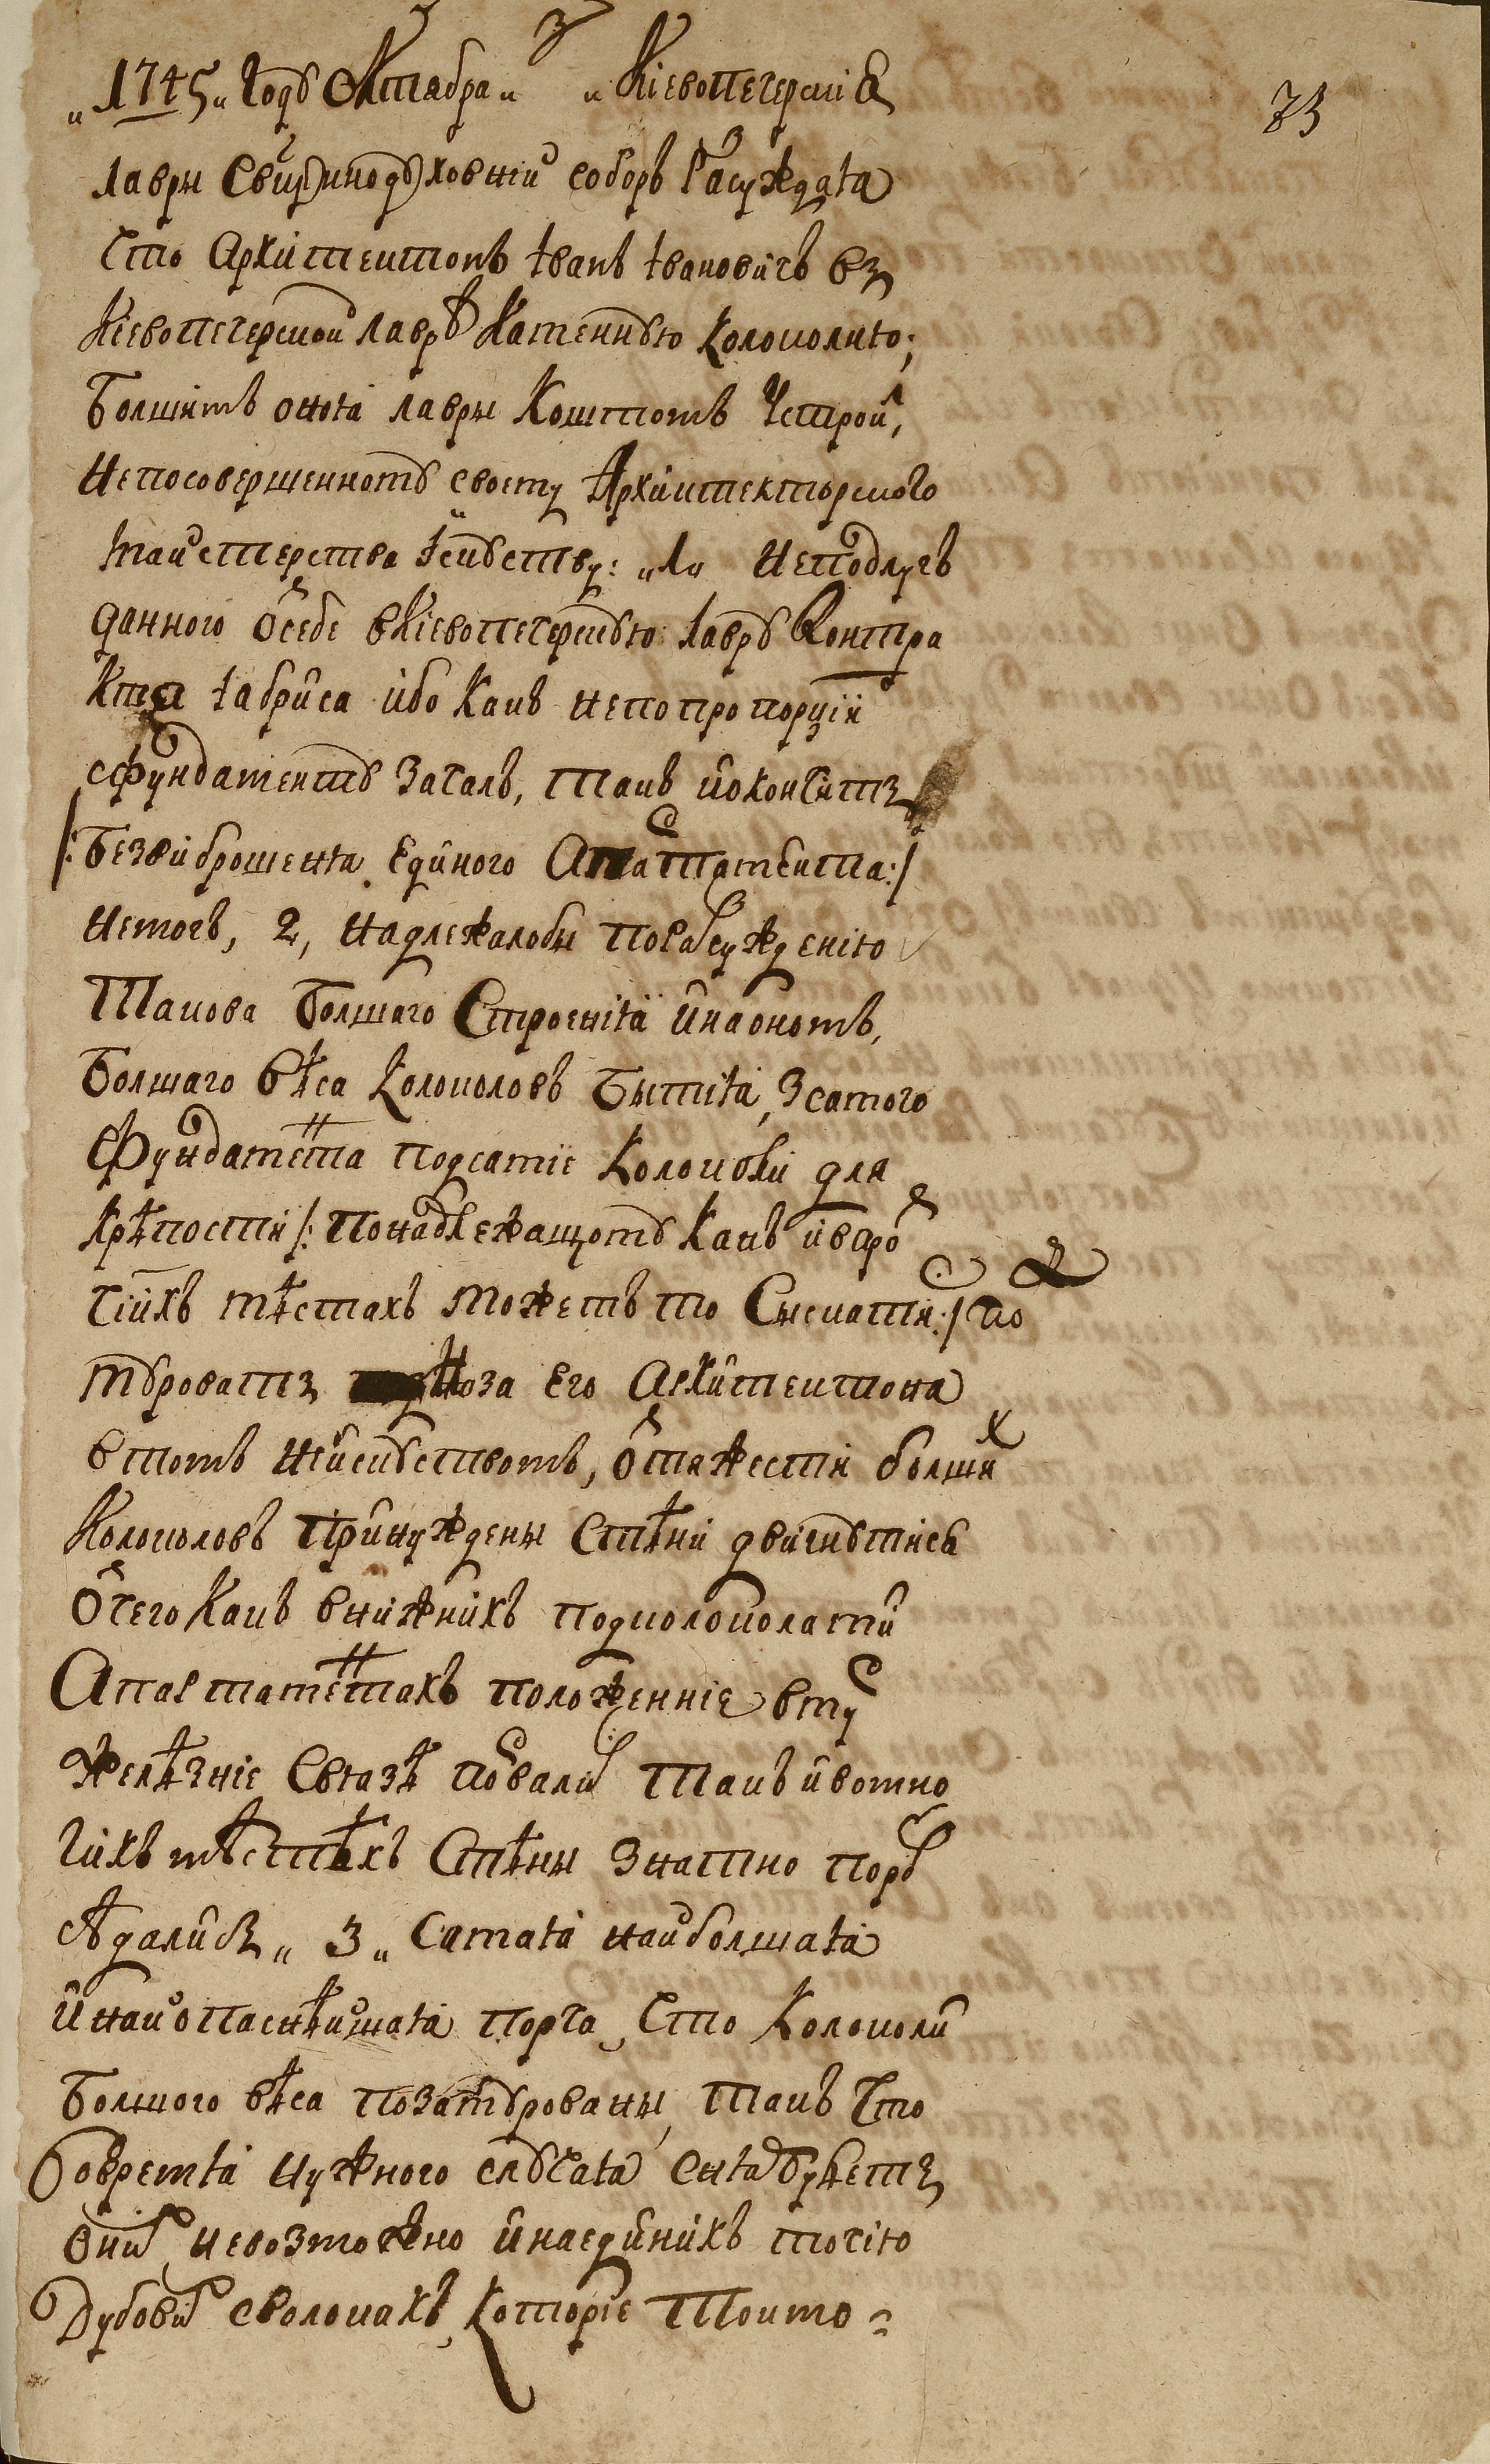 „1745„ году Октября „ „ Кіевопечерскія
73
лавры Свщеннодуховній соборъ Разсуждая
Что Архитекторъ Іванъ Івановичъ въ
Кіевопечерской лаврѣ Каменную колоколню;
Болшимъ оноя лавры Коштомъ Устрой,
Непосовершенному своему Архитектурского
майстерства Іскуству: „1„ Неподлугъ
данного ѿ себе вКіевопечерскую лавру Контра
кта Іабриса ибо Какъ непопропорціи
сфундаменту Зачалъ, Такъ иокончитъ
/:Безвиброшения единого Апартамента:/
Ктогъ, 2, Надлежалобы поразсуждению
Такова Болшаго Строения инаономъ,
Болшаго вѣса колоколовъ Бытия, Зсамого
Фундамента подсаміе колоколи для
Крѣпости /: понадлежащому Какъ ивдро
гіихъ мѣстахъ можетъ то Сыскати:/ по
муроватъ Ноза его Архитектона
втомъ неискуствомъ, ѿтяжести болших
Колоколовъ принуждены стѣни двигнутись
ѿчего Какъ внижнихъ подколоколами
Апартаментахъ положенніе вму
желѣзніе Связѣ порвали Такъ ивомно
гихъ мѣстѣхъ Стѣны Значно пору
сѣдались „ 3 „ Самая наиболшая
инаиопаснѣйшая порча, Что Колоколи
Болшого вѣса позамурованы, Такъ Что
вовремя нужного случая снятъ будетъ
онихъ невозможно инаединихъ точію
Дубовихъ сволокахъ, которіе Токмо